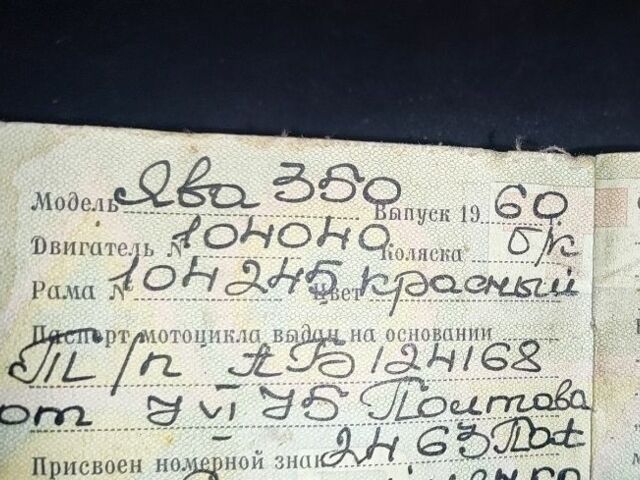 Модель Ява 350 Выпуск 19 60
Двигатель № 104040 Коляска б/к
Рама № 104245 Цвет красный
Паспорт мотоцикла выдан на основании
Т/п АБ 124168
от VI 75 Полтава
Присвоен номерной знак 2463